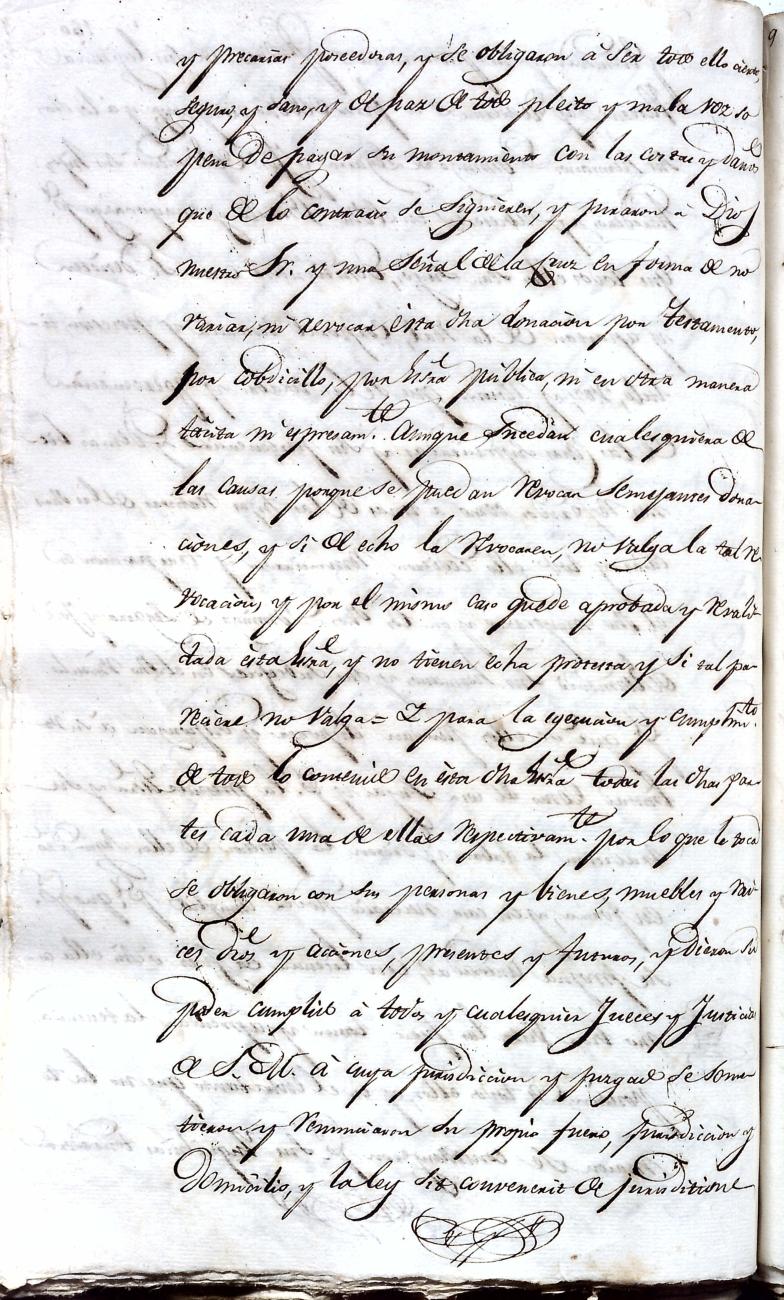 y precarias poseedoras, y se obligaron à ser todo ello cierto,
seguro, y sano, y de paz de todo pleito y mala voz so
pena de pagar su montamiento con las costas y daños
que de lo contrario se siguieren, y juraron à Dios
nuestro Sr. y una Señal de la Cruz en forma de no
variar, ni revocar esta dha donacion por testamento,
por cobdicillo, por Essra publica, ni en otra manera
tacita ni espresamte. Aunque sucedan cualesquiera de
las causas porque se puedan revocar semejantes dona-
ciones, y si de echo la revocaren, no valga la tal re-
vocacion, y por el mismo caso quede aprobada y revali-
dada esta Essra, y no tienen echa protesta y si tal pa-
reciere no valga = Y para la egecucion y cumplimto.
de todo lo contenido en esta dha Essra todas las dhas par-
tes cada una de ellas respectivamte. por lo que le toca
se obligaron con sus personas y bienes, muebles y rai-
ces dros y acciones, presentes y futuros, y dieron su
poder cumplido à todos y cualesquier Jueces y Justicias
de S. M. à cuya jurisdiccion y juzgado se some-
tieron y renunciaron su propio fuero, jurisdiccion y
domicilio, y la ley sit convenerit de jurisditione